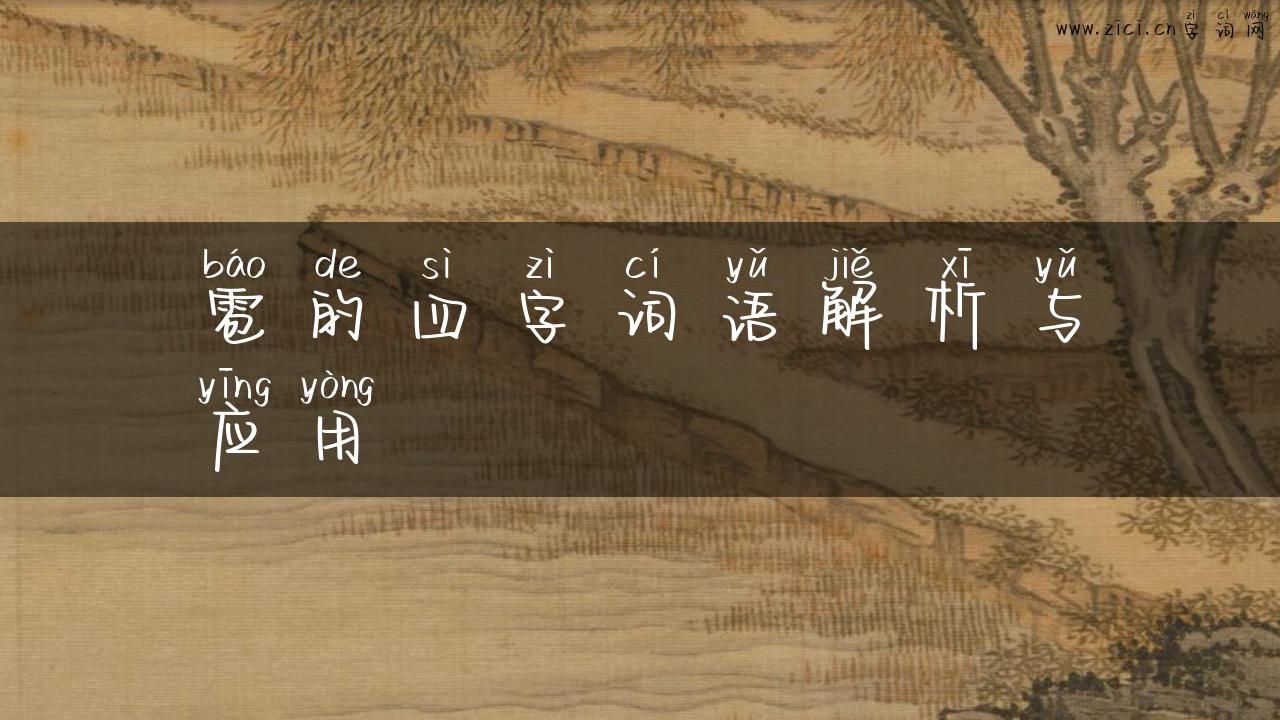 zì cí wǎng
www.zici.cn字词网
báo de sì zì cí yǔ jiě xī yǔ
雹的四字词语解析与
yīng yòng
应用